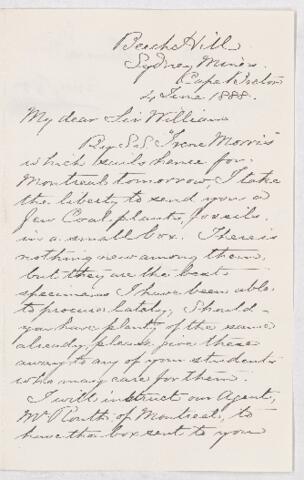 Beech Hill
Sydney Mines
Cape Breton
4 June 1888.
My dear Sir William
By S.S. "Irene Morris"
which sails hence for
Montreal tomorrow, I take
the liberty to send you a
few Coal plants, fossils
in a small box. There is
nothing new among them,
but they are the best
specimens I have been able
to procure lately; Should
you have plenty of the same
already, please give these
away to any of your students
who may care for them.
I will instruct our Agent,
Mr Routh, of Montreal, to
have the box sent to you